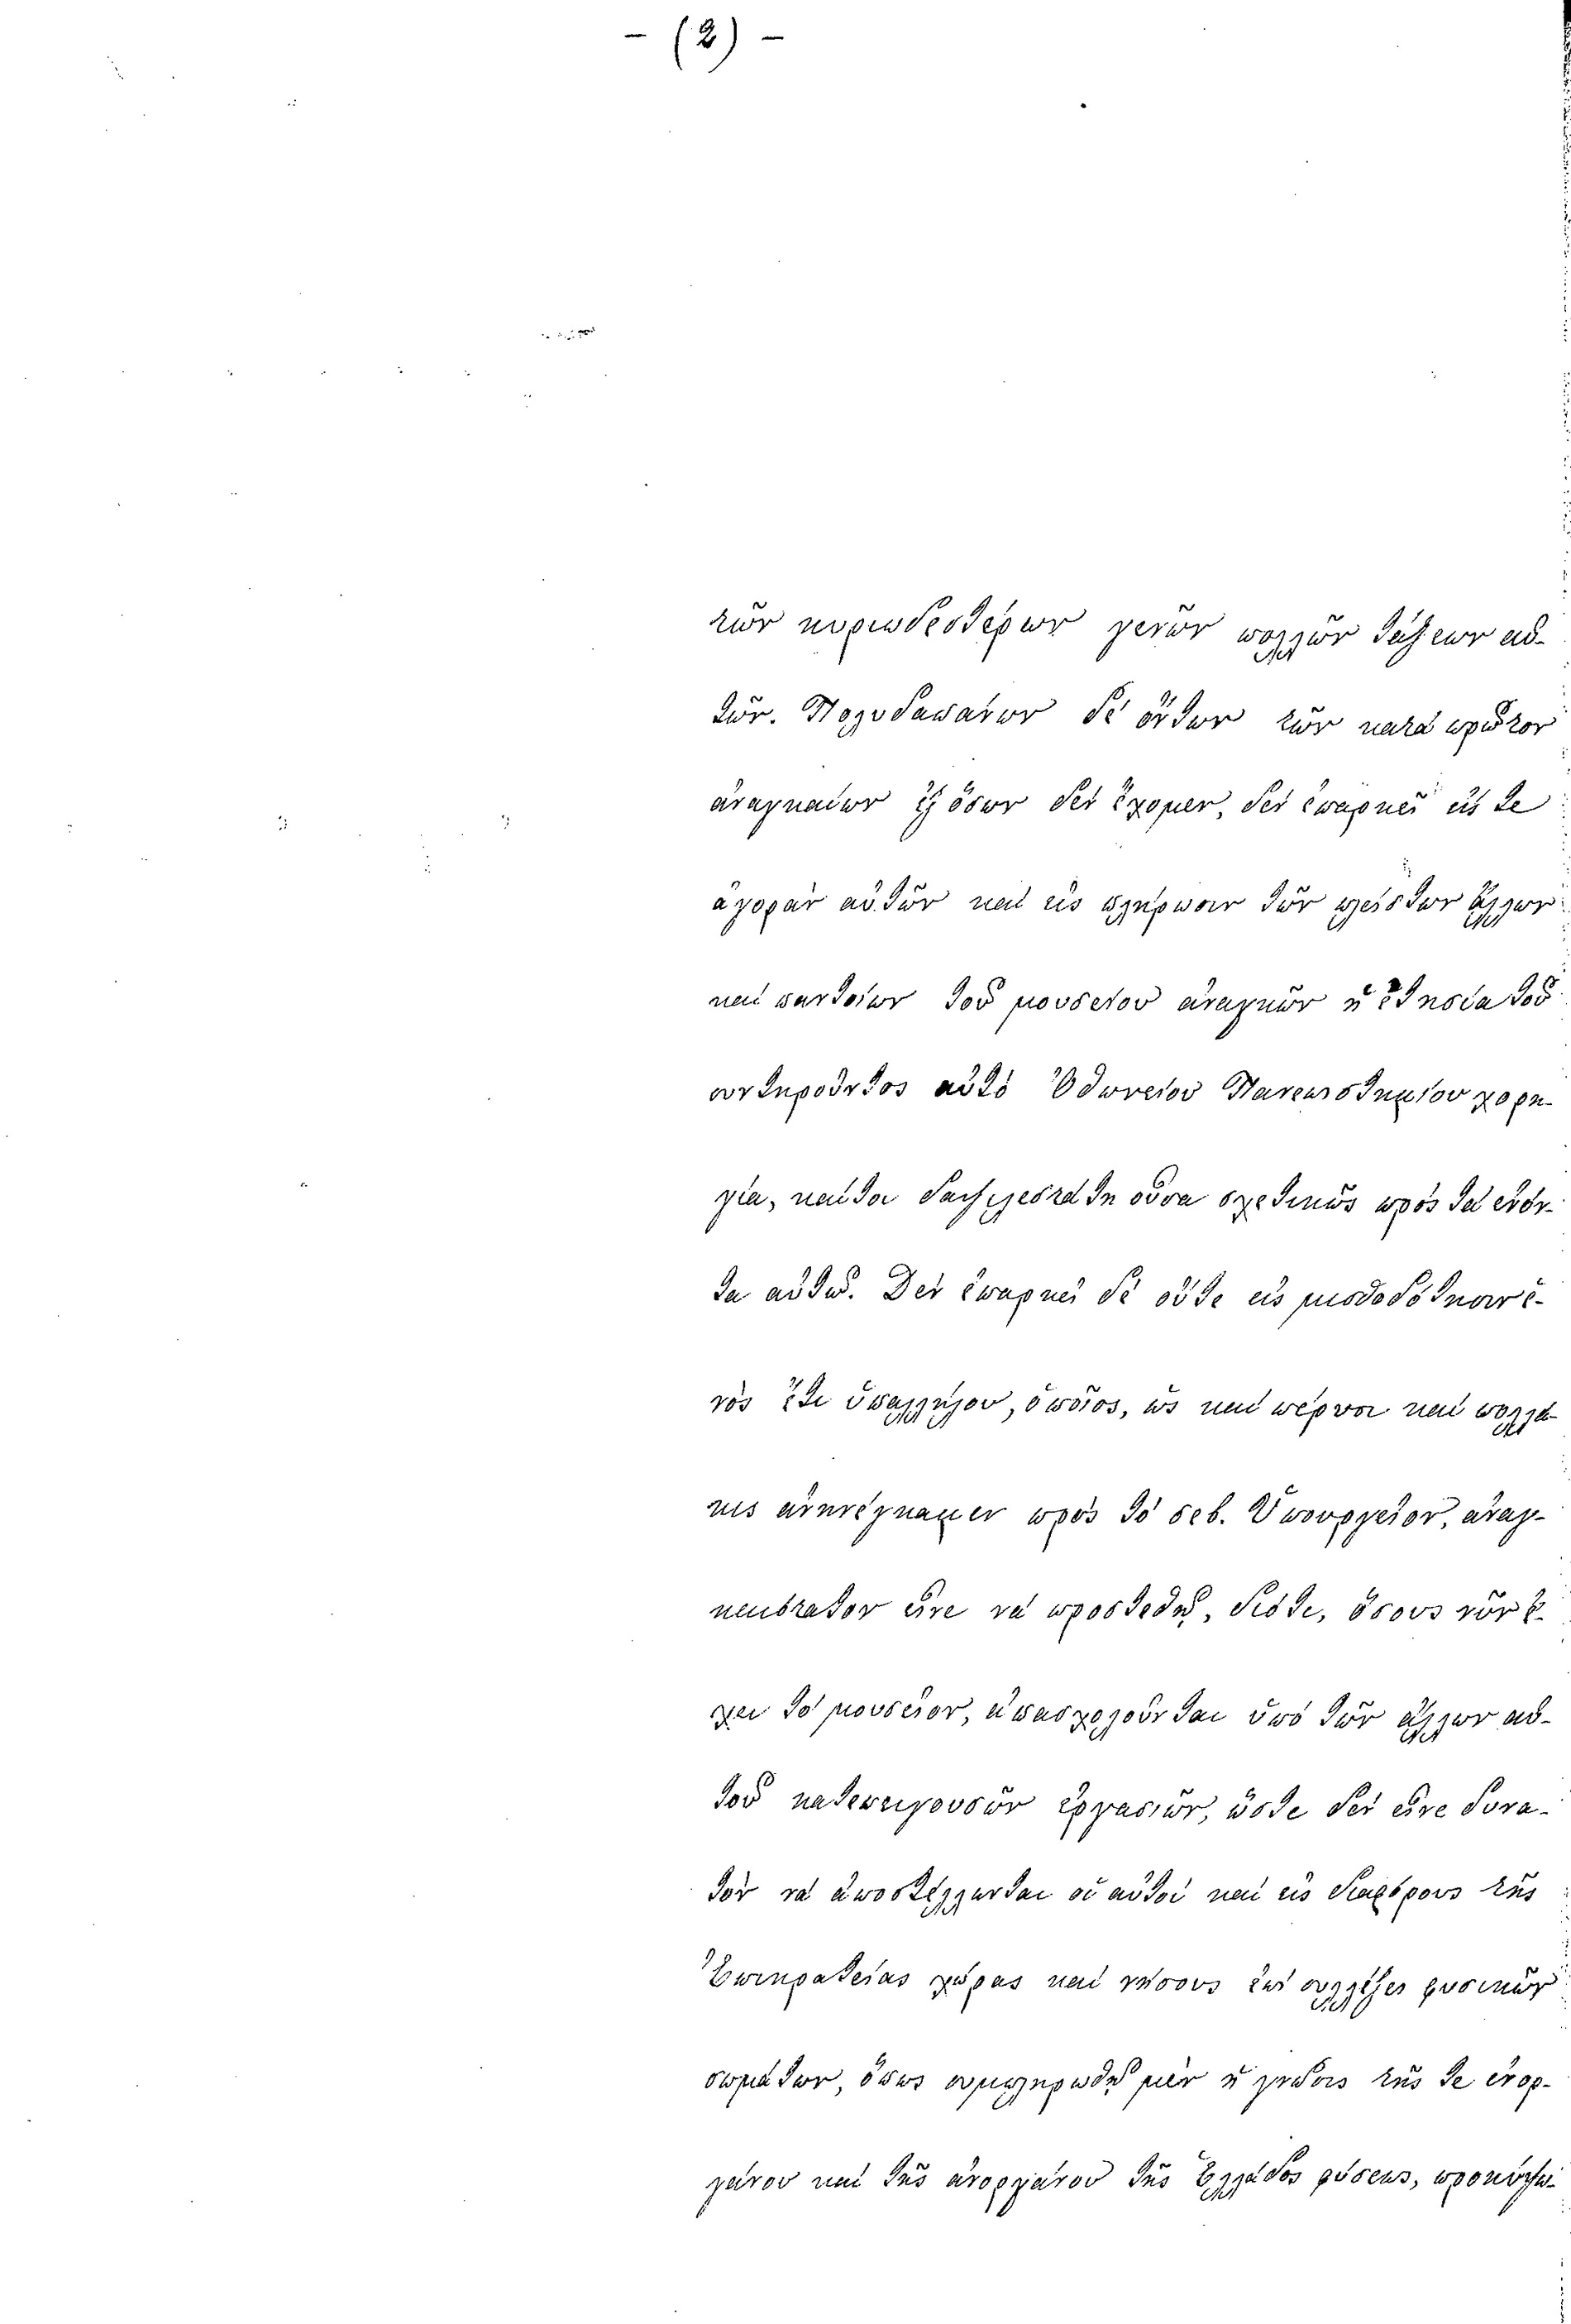 - (2) -
τῶν κυριωδεστέρων γενῶν πολλῶν τάξεων αὐ-
τῶν. Πολυδαπάνων δὲ ὄντων τῶν κατὰ πρῶτον
ἀναγκαίων ἐξ ὅσων δὲν ἔχομεν, δὲν ἐπαρκεῖ εἴς τε
ἀγορὰν αὐτῶν καὶ εἰς πλήρωσιν τῶν πλείστων ἄλλων
καὶ παντοίων τοῦ μουσείου ἀναγκῶν ἡ ἐτησία τοῦ
συντηροῦντος αὐτὸ Ὀθωνείου Πανεπιστημίου χορη-
γία, καίτοι δαψιλεστάτη οὖσα σχετικῶς πρὸς τὰ ἐνόν-
τα αὐτῷ. Δὲν ἐπαρκεῖ δὲ οὔτε εἰς μισθοδότησιν ἑ-
νὸς ἔτι ὑπαλλήλου, ὁποῖος, ὡς καὶ πέρυσι καὶ πολλά-
κις ἀνηνέγκαμεν πρὸς τὸ σεβ. Ὑπουργεῖον, ἀναγ-
καιότατον εἶνε νὰ προστεθῇ, διότι, ὅσους νῦν ἔ-
χει τὸ μουσεῖον, ἀπασχολοῦνται ὑπὸ τῶν ἄλλων αὐ-
τοῦ κατεπειγουσῶν ἐργασιῶν, ὥστε δὲν εἶνε δυνα-
τὸν νὰ ἀποστέλλωνται οἱ αὐτοὶ καὶ εἰς διαφόρους τῆς
Ἐπικρατείας χώρας καὶ νήσους ἐπὶ συλλέξει φυσικῶν
σωμάτων, ὅπως συμπληρωθῇ μὲν ἡ γνῶσις τῆς τε ἐνορ-
γάνου καὶ τῆς ἀνοργάνου τῆς Ἑλλάδος φύσεως, προκύψω-